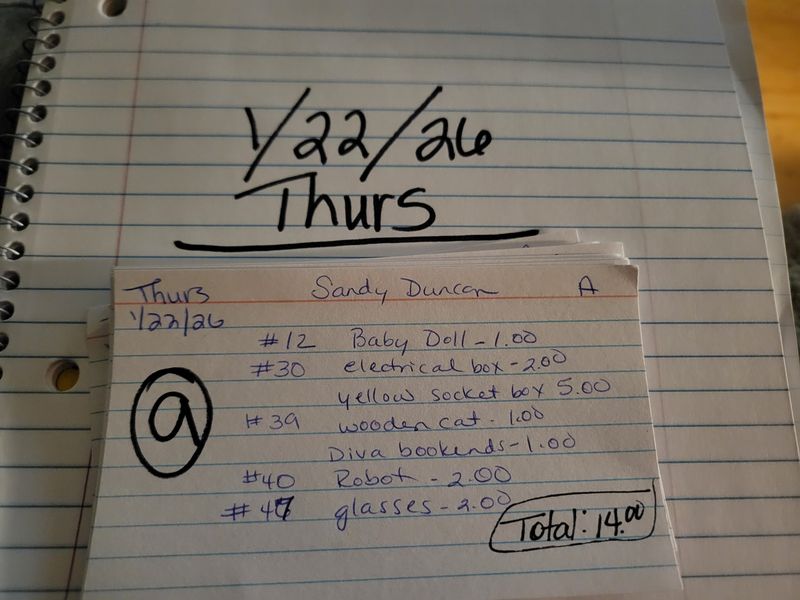 1/22/26
Thurs
Thurs Sandy Duncan A
1/22/26
#12 Baby Doll - 1.00
#30 electrical box - 2.00
yellow socket box 5.00
9
#39 wooden cat - 1.00
Diva bookends - 1.00
#40 Robot - 2.00
#47 glasses - 2.00
Total: 14.00